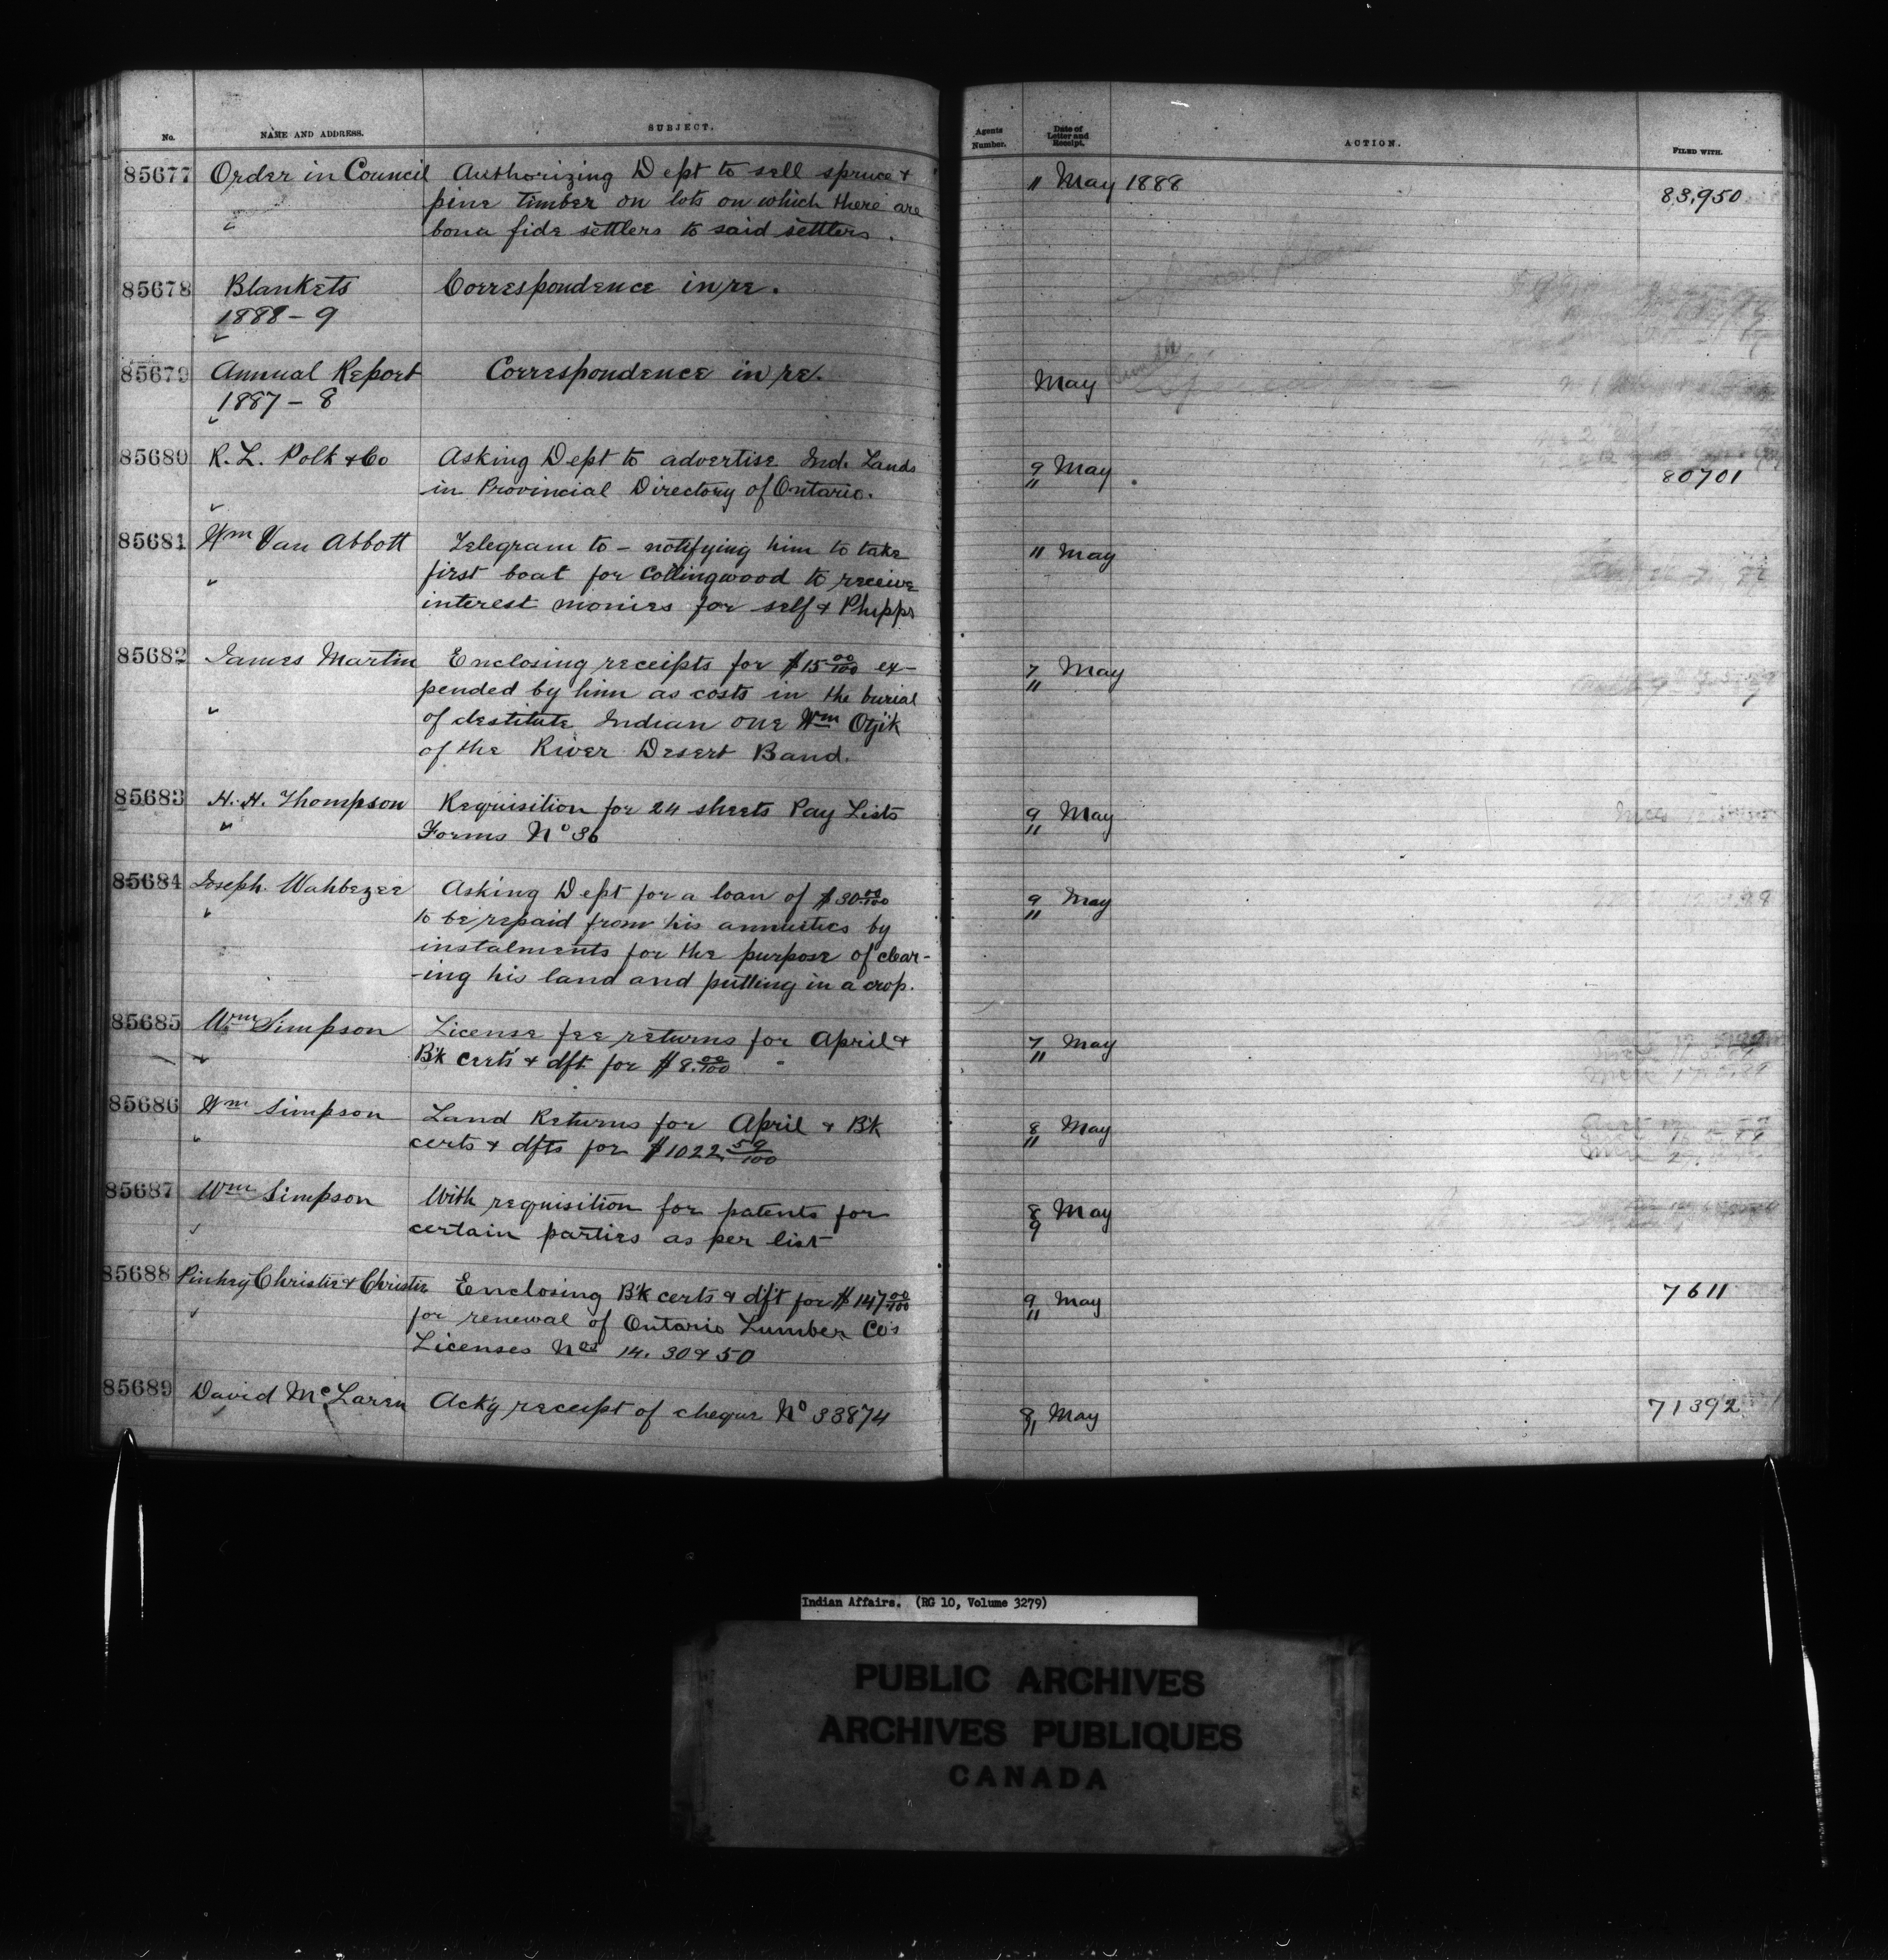 No. NAME AND ADDRESS. SUBJECT. Agents Number. Date of Letter and Receipt. ACTION. FILED WITH.
85677 Order in Council Authorizing Dept to sell spruce & 11 May 1888 83,950
pine timber on lots on which there are
bona fide settlers to said settlers.
85678 Blankets Correspondence in re.
1888-9
85679 Annual Report Correspondence in re. May
1887-8
85680 R. L. Polk & Co Asking Dept to advertise Ind. Lands 9/11 May 80701
in Provincial Directory of Ontario.
85681 Wm Van Abbott Telegram to - notifying him to take 11 May
first boat for Collingwood to receive
interest monies for self & Phipps
85682 James Martin Enclosing receipts for $15 00/100 ex- 7/11 May
pended by him as costs in the burial
of destitute Indian one Wm Otjik
of the River Desert Band.
85683 H. H. Thompson Requisition for 24 sheets Pay Lists 9/11 May
Forms No 36
85684 Joseph Wahbezee Asking Dept for a loan of $30 00/100 9/11 May
to be repaid from his annuities by
instalments for the purpose of clear-
-ing his land and putting in a crop.
85685 Wm Simpson License fee returns for April & 7/11 May
B'k certs & dft for $8.00/100
85686 Wm Simpson Land Returns for April & B'k 8/11 May
certs & dfts for $1022.59/100
85687 Wm Simpson With requisition for patents for 8/9 May
certain parties as per list
85688 Pinhey Christie & Christie Enclosing B'k certs & dft for $147 00/100 9/11 May 7611
for renewal of Ontario Lumber Co's
Licenses Nos 14. 30 & 50
85689 David McLaren Ack'g receipt of cheque No 33874 9/11 May 71392
Indian Affairs. (RG 10, Volume 3279)
PUBLIC ARCHIVES
ARCHIVES PUBLIQUES
CANADA